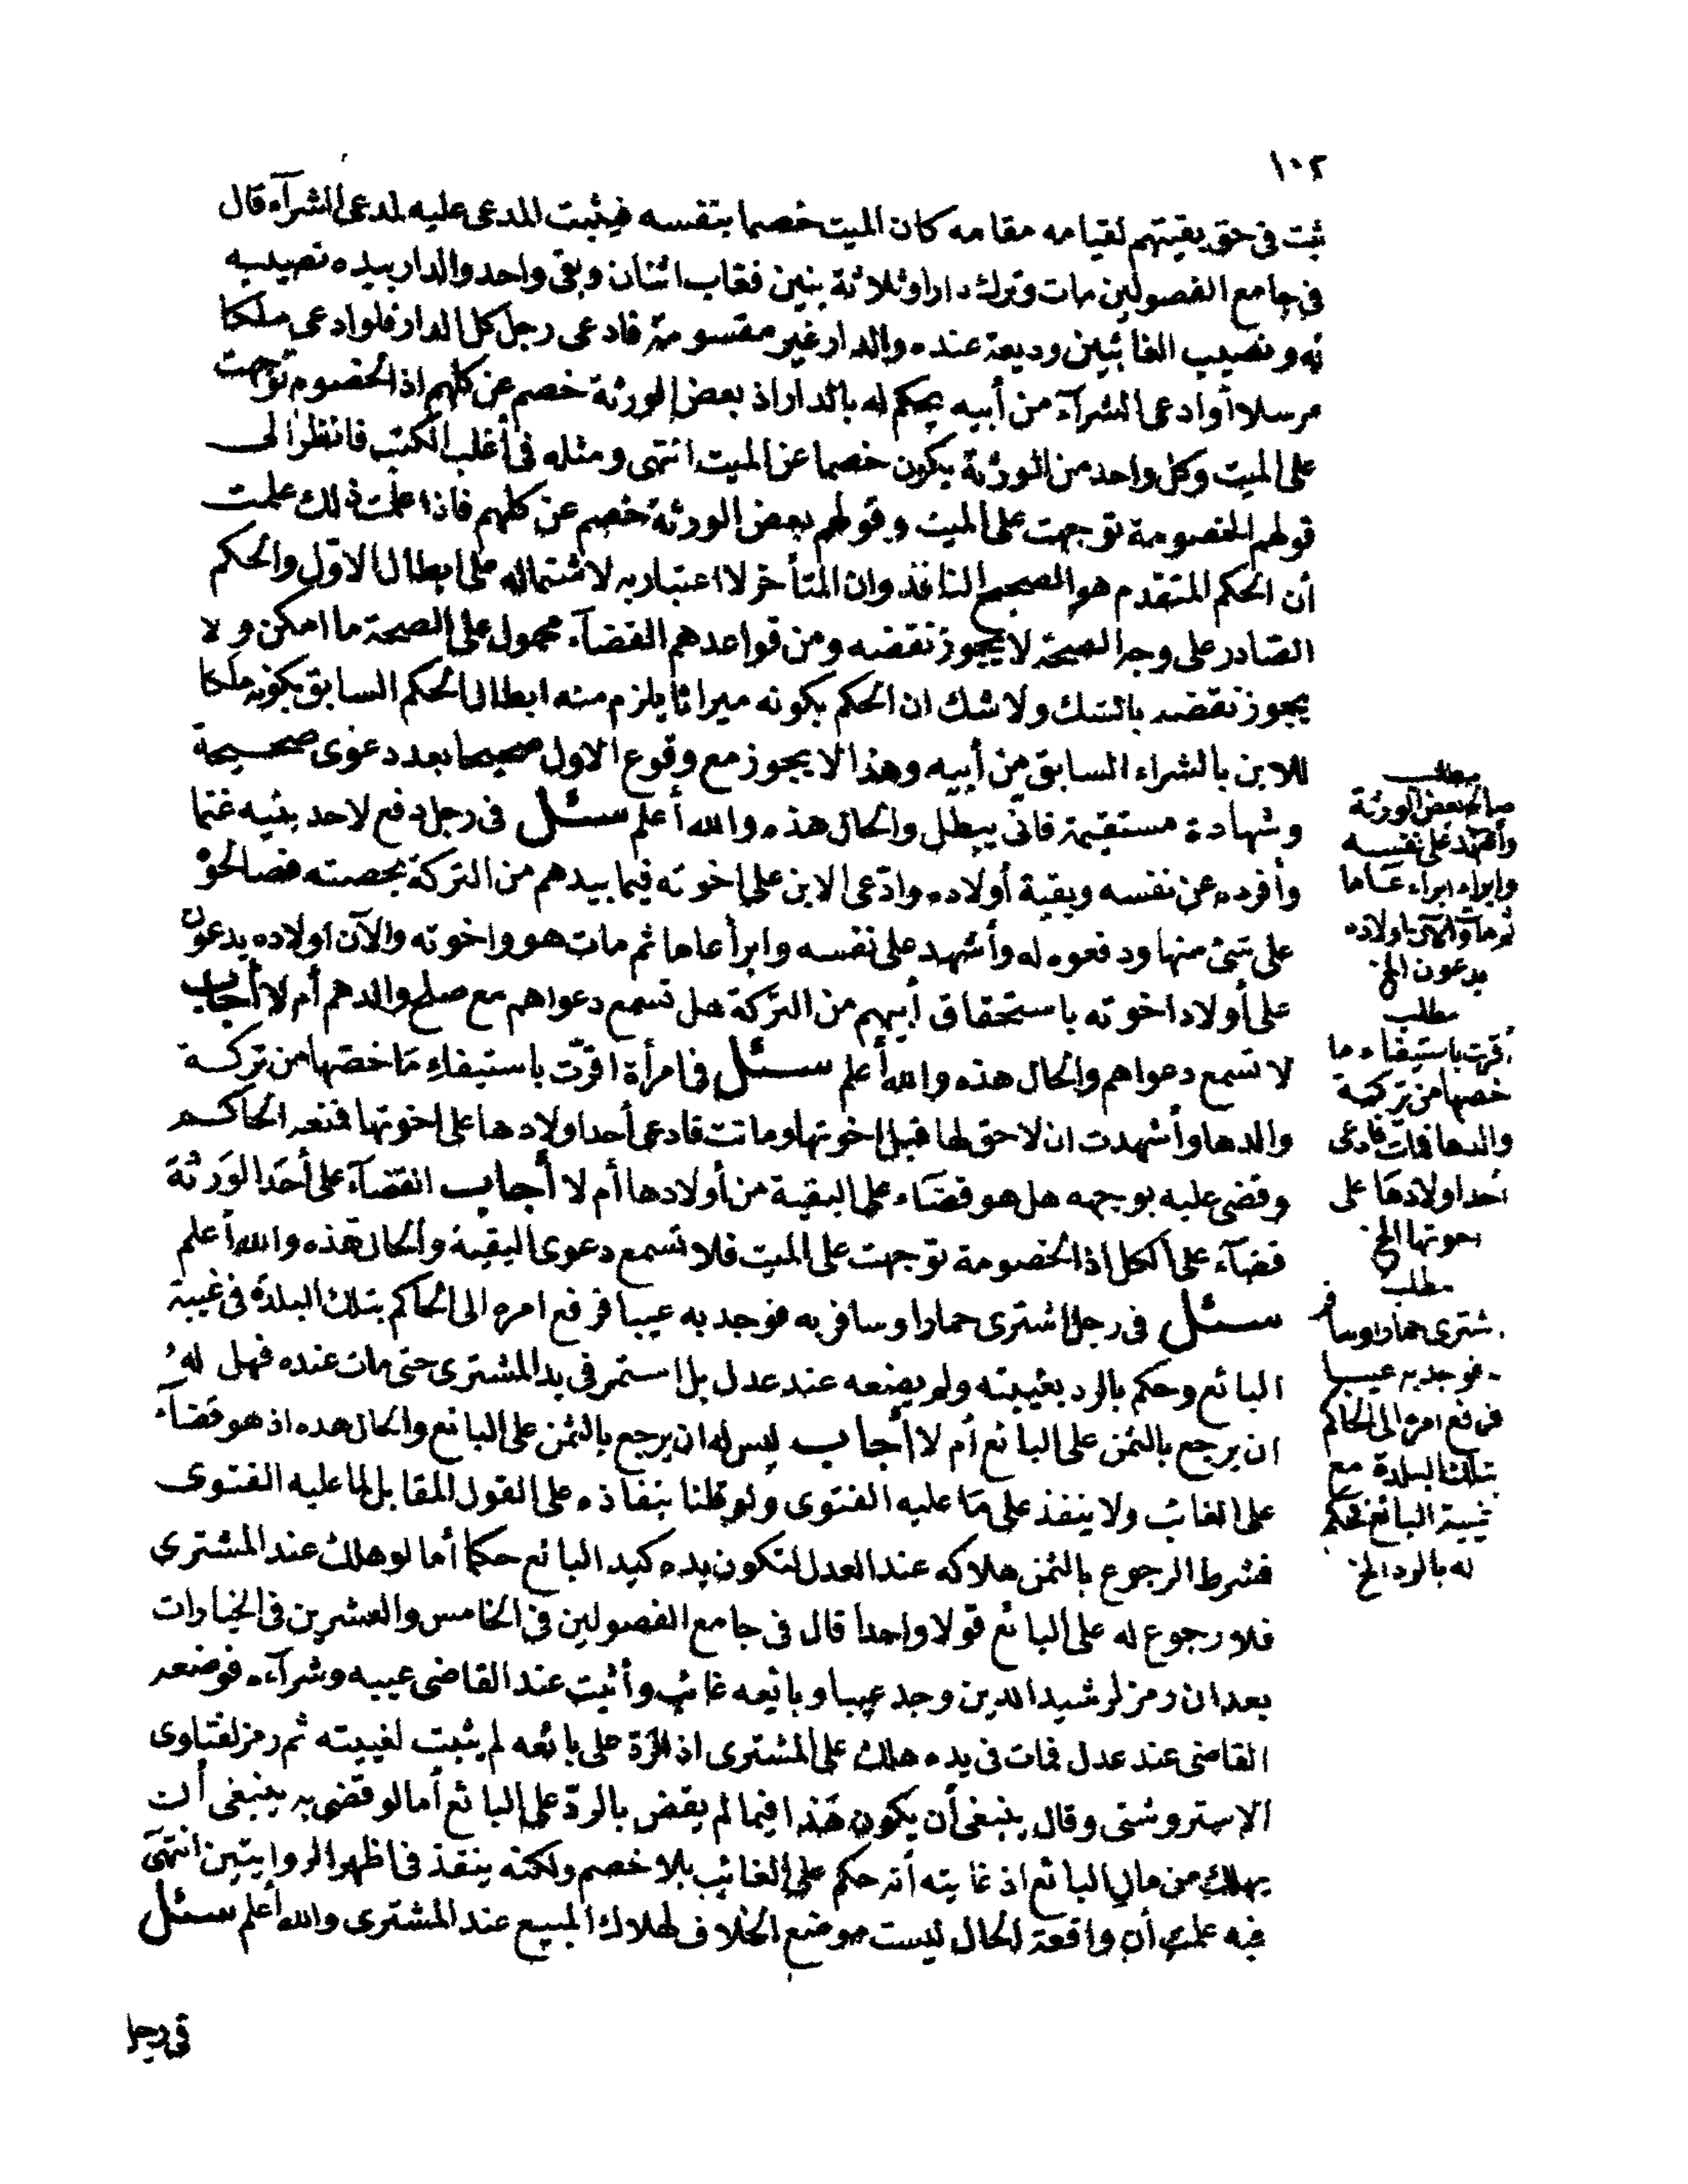 ١٠٢
ثبت فى حق بقيتهم لقيامه مقامه كان الميت خصما بنفسه فيثبت المدعى عليه لمدعى الشرآء قال
فى جامع الفصولين مات وترك دارا وثلاثة بنين فغاب اثنان وبقى واحد والدار بيده نصيبه
له ونصيب الغائبين وديعة عنده والدار غير مقسومة فادعى رجل كل الدار فلو ادعى ملكا
مرسلا أو ادعى الشرآء من أبيه يحكم له بالدار اذ بعض الورثة خصم عن كلهم اذ الخصوم توجهت
على الميت وكل واحد من الورثة يكون خصما عن الميت انتهى ومثله فى أغلب الكتب فانظر الى
قولهم الخصومة توجهت على الميت وقولهم بعض الورثة خصم عن كلهم فاذا علمت ذلك علمت
أن الحكم المتقدم هو الصحيح النافذ وان المتأخر لا اعتبار به لاشتماله على ابطال الاول والحكم
الصادر على وجه الصحة لا يجوز نقضه ومن قواعدهم القضآء محمول على الصحة ما امكن ولا
يجوز نقضه بالشك ولا شك ان الحكم بكونه ميراثا يلزم منه ابطال الحكم السابق بكونه ملكا
للابن بالشراء السابق من أبيه وهذا لا يجوز مع وقوع الاول صحيحا بعد دعوى صحيحة
وشهادة مستقيمة فانى يبطل والحال هذه والله أعلم سئل فى رجل دفع لاحد بنيه غنما
وأفرده عن نفسه وبقية أولاده وادّعى الابن على اخوته فيما بيدهم من التركة بحصته فصالحوه
على شئ منها ودفعوه له وأشهد على نفسه وابرأ عاما ثم مات هو واخوته والآن اولاده يدعون
على أولاد اخوته باستحقاق أبيهم من التركة هل تسمع دعواهم مع صلح والدهم أم لا أجاب
لا تسمع دعواهم والحال هذه والله أعلم سئل فى امرأة اقرّت باستيفاء ما خصها من تركة
والدها وأشهدت ان لا حق لها قبل اخوتها وماتت فادعى أحد اولادها على اخوتها فمنعه الحاكم
وقضى عليه بوجهه هل هو قضاء على البقية من أولادها أم لا أجاب القضآء على أحد الورثة
قضآء على الكل اذ الخصومة توجهت على الميت فلا تسمع دعوى البقية والحال هذه والله أعلم
سئل فى رجل اشترى حمارا وسافر به فوجد به عيبا فرفع امره الى الحاكم بتلك البلدة فى غيبة
البائع وحكم بالرد بغيبته ولم يضعه عند عدل بل استمر فى يد المشترى حتى مات عنده فهل له
ان يرجع بالثمن على البائع أم لا أجاب ليس له ان يرجع بالثمن على البائع والحال هذه اذ هو قضآء
على الغائب ولا ينفذ على ما عليه الفتوى ولو قلنا بنفاذه على القول المقابل لما عليه الفتوى
فشرط الرجوع بالثمن هلاكه عند العدل لتكون يده كيد البائع حكما أما لو هلك عند المشترى
فلا رجوع له على البائع قولا واحدا قال فى جامع الفصولين فى الخامس والعشرين فى الخيارات
بعد ان رمز لرشيد الدين وجد عيبا وبائعه غائب وأثبت عند القاضى عيبه وشرآءه فوضعه
القاضى عند عدل فمات فى يده هلك على المشترى اذ الردّ على بائعه لم يثبت لغيبته ثم رمز لفتاوى
الاستروشنى وقال ينبغى أن يكون هذا فيما لم يقض بالردّ على البائع أما لو قضى به ينبغى أن
يهلك من مال البائع اذ غايته أنه حكم على الغائب بلا خصم ولكنه ينفذ فى اظهر الروايتين انتهى
فبه علمت أن واقعة الحال ليست موضع الخلاف لهلاك المبيع عند المشترى والله أعلم سئل
فى رجل
مطلب
صالح بعض الورثة
وأشهد على نفسه
وابراء ابراء عاما
ثم مات والآن اولاده
يدعون الخ
مطلب
اقرت باستيفاء ما
خصها من تركة
والدها فماتت فادعى
احد اولادها على
اخوتها الخ
مطلب
اشترى حمارا وسافر
فوجد به عيبا
فرفع امره الى الحاكم
بتلك البلدة مع
غيبة البائع فحكم
له بالرد الخ